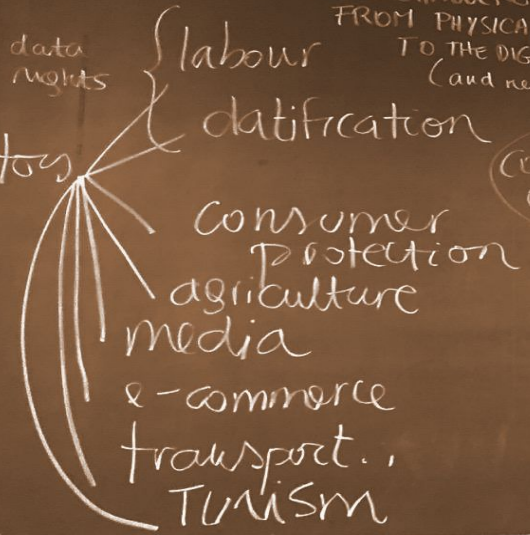 FROM PHYSICA
TO THE DIG
(and ne
data
rights
labour
datification
tors
consumer
protection
agriculture
media
e-commerce
transport..
TURISM